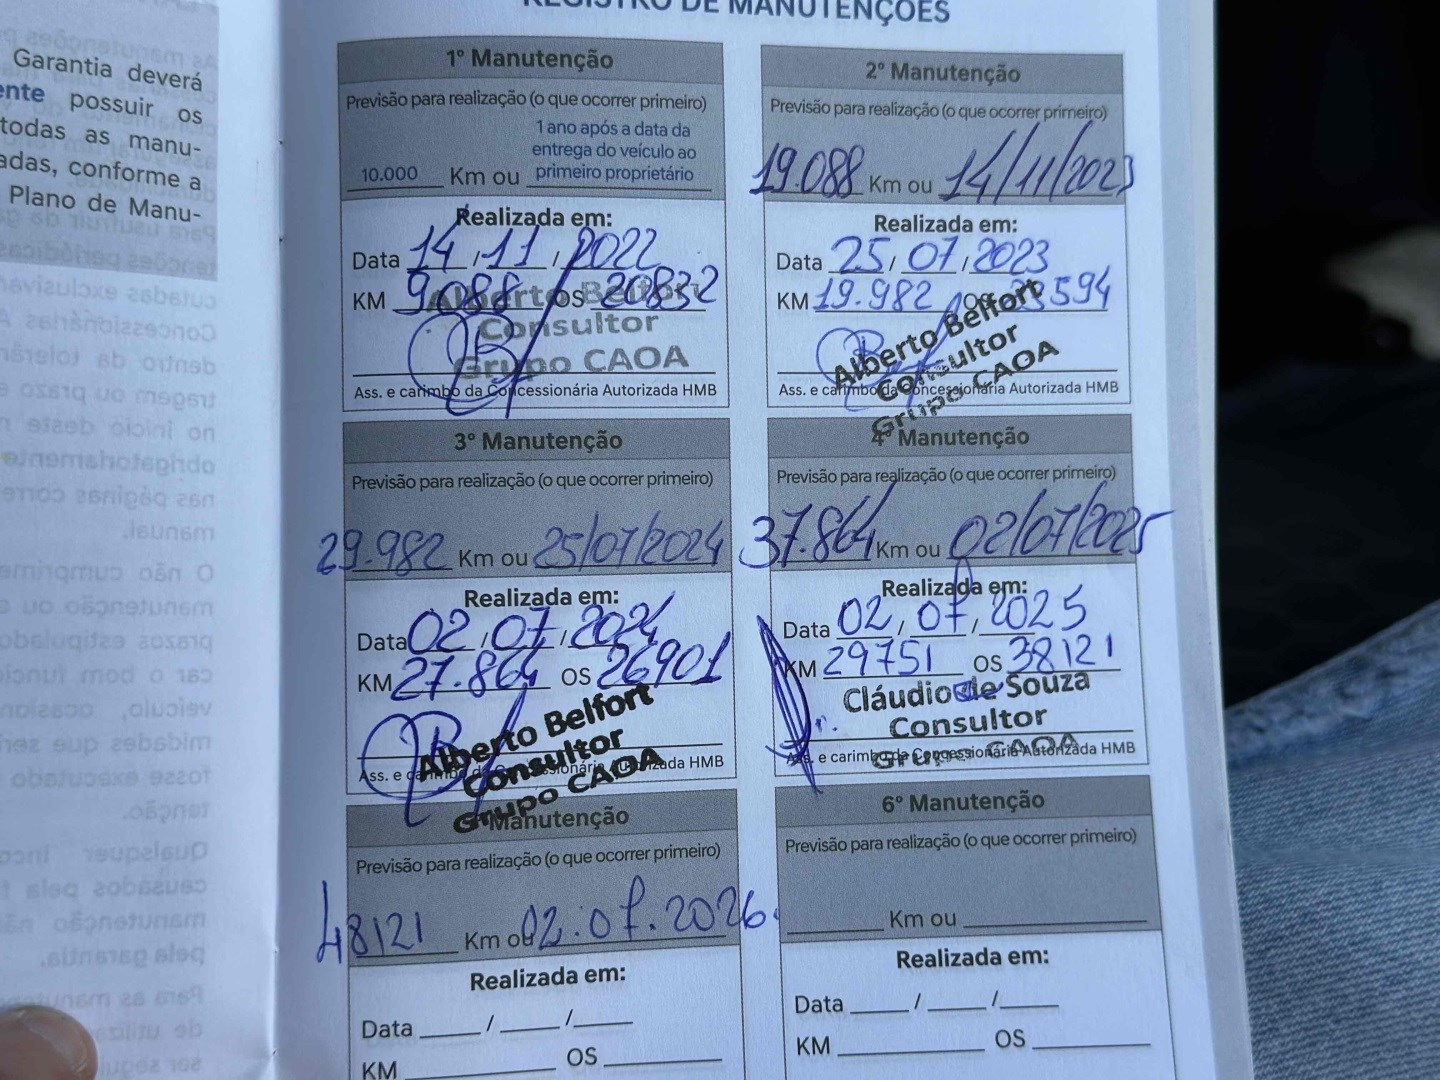 REGISTRO DE MANUTENÇÕES
Garantia deverá
ente possuir os
todas as manu-
adas, conforme a
Plano de Manu-
1º Manutenção
Previsão para realização (o que ocorrer primeiro)
10.000 Km ou 1 ano após a data da
entrega do veículo ao
primeiro proprietário
Realizada em:
Data 14 / 11 / 2022
KM 9.088 OS 20832
Alberto Belfort
Consultor
Grupo CAOA
Ass. e carimbo da Concessionária Autorizada HMB
2º Manutenção
Previsão para realização (o que ocorrer primeiro)
19.088 Km ou 14/11/2023
Realizada em:
Data 25 / 07 / 2023
KM 19.982 OS 594
Alberto Belfort
Consultor
Grupo CAOA
Ass. e carimbo da Concessionária Autorizada HMB
3º Manutenção
Previsão para realização (o que ocorrer primeiro)
29.982 Km ou 25/07/2024
Realizada em:
Data 02 / 07 / 2024
KM 27.864 OS 26901
Alberto Belfort
Consultor
Grupo CAOA
Ass. e carimbo da Concessionária Autorizada HMB
4º Manutenção
Previsão para realização (o que ocorrer primeiro)
37.864 Km ou 02/07/2025
Realizada em:
Data 02 / 07 / 2025
KM 29751 OS 38121
Cláudio de Souza
Consultor
Grupo CAOA
Ass. e carimbo da Concessionária Autorizada HMB
Manutenção
Previsão para realização (o que ocorrer primeiro)
48121 Km ou 02.07.2026.
Realizada em:
Data / /
KM OS
6º Manutenção
Previsão para realização (o que ocorrer primeiro)
Km ou
Realizada em:
Data / /
KM OS